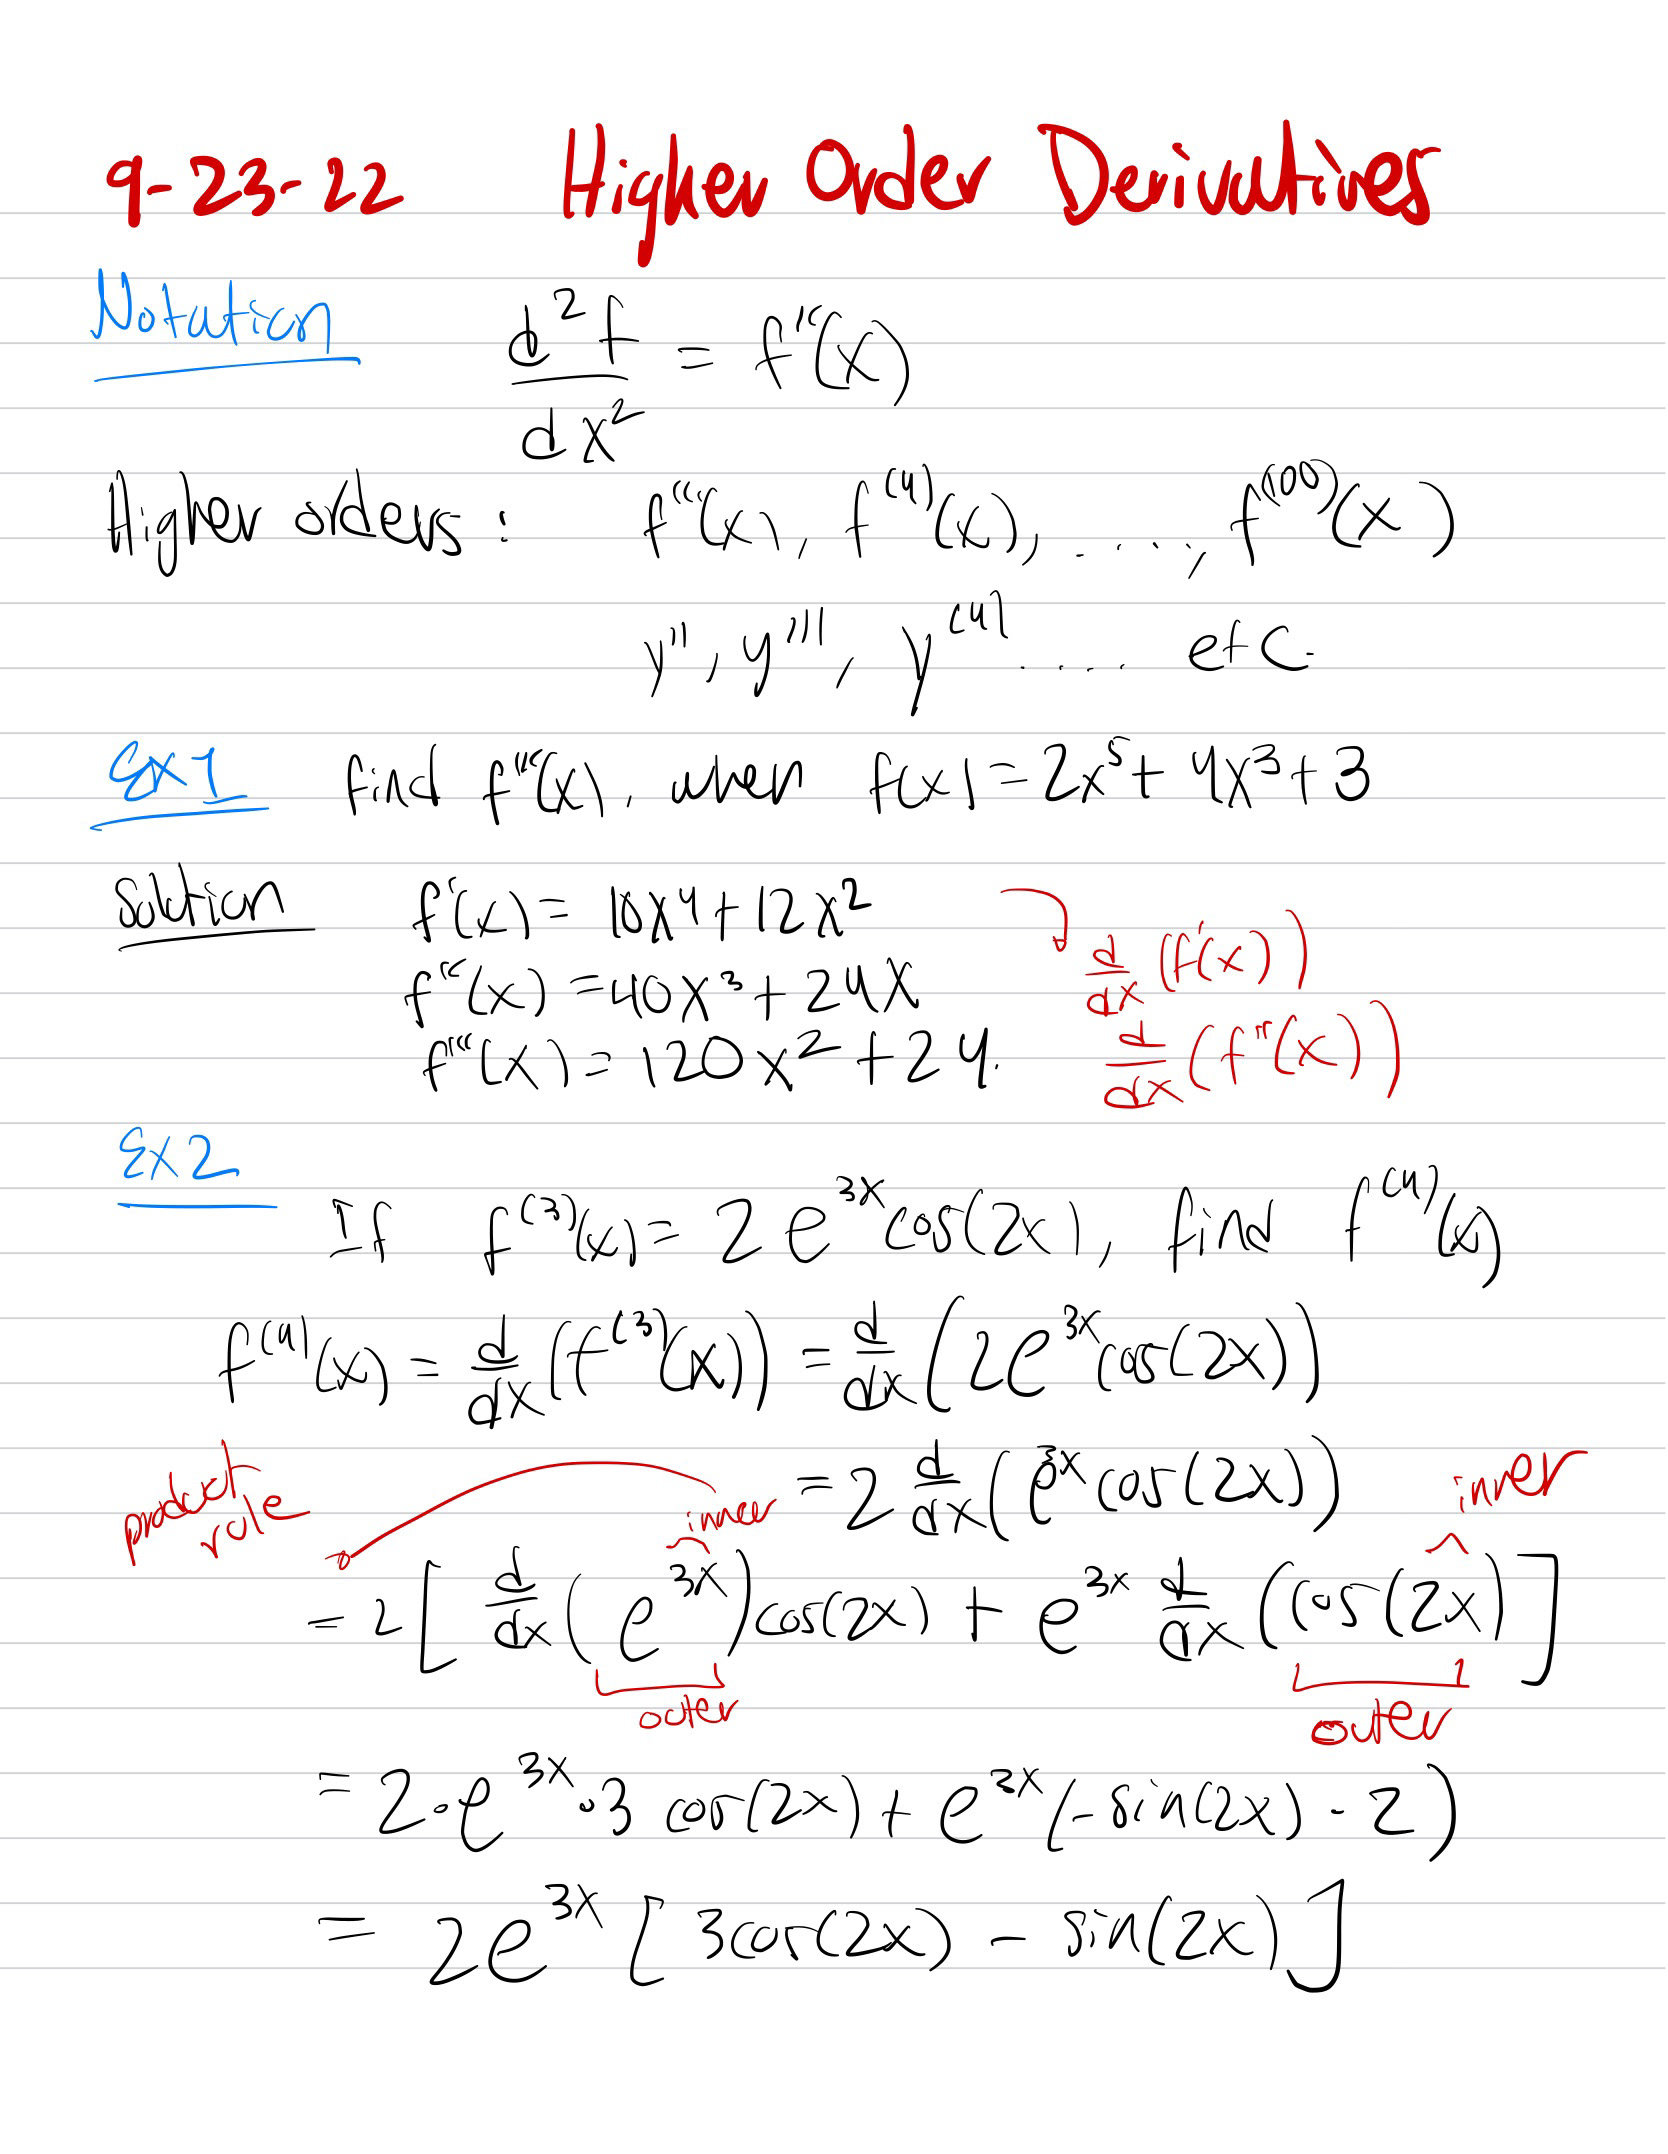 9-23-22 Higher Order Derivatives
Notation d²f/dx² = f''(x)
Higher orders: f'''(x), f⁽⁴⁾(x), ....., f⁽¹⁰⁰⁾(x)
y'', y''', y⁽⁴⁾ .... etc.
Ex 1 find f'''(x), when f(x) = 2x⁵ + 4x³ + 3
Solution f'(x) = 10x⁴ + 12x²
d/dx (f'(x))
f''(x) = 40x³ + 24x
f'''(x) = 120x² + 24. d/dx (f''(x))
Ex 2
If f⁽³⁾(x) = 2e³ˣcos(2x), find f⁽⁴⁾(x)
f⁽⁴⁾(x) = d/dx (f⁽³⁾(x)) = d/dx (2e³ˣcos(2x))
= 2 d/dx (e³ˣ cos(2x))
product rule
inner
inner
= 2 [ d/dx (e³ˣ) cos(2x) + e³ˣ d/dx (cos(2x) ]
outer
outer
= 2·e³ˣ·3 cos(2x) + e³ˣ (-sin(2x) · 2)
= 2e³ˣ [ 3cos(2x) - sin(2x) ]